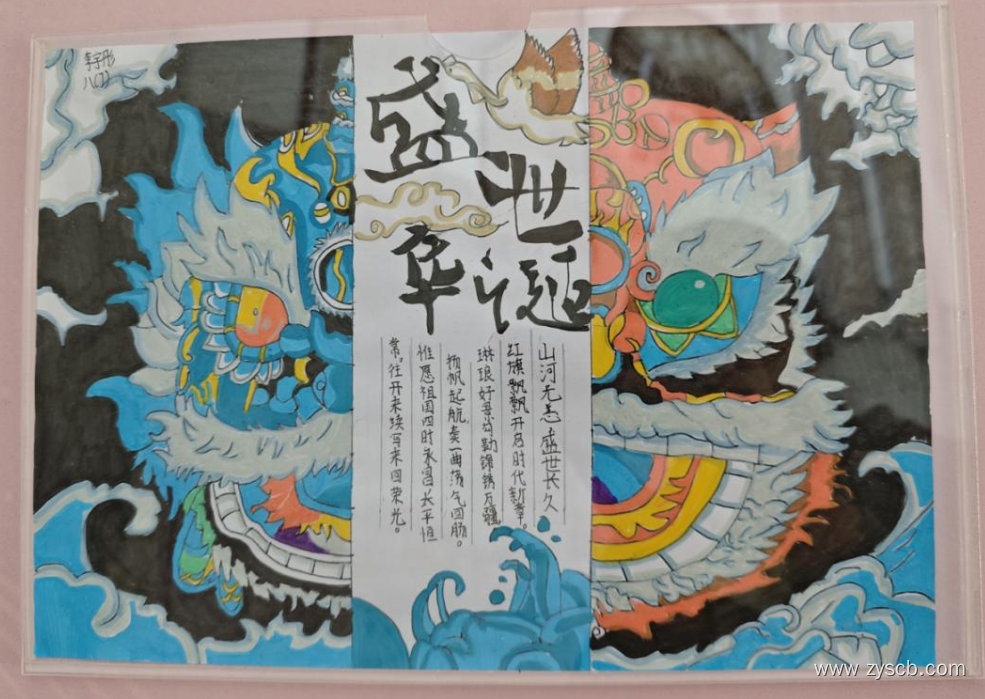 李子彤
八(7)
盛世
华诞
山河无恙 盛世长久
红旗飘飘开启时代新章。
琳琅好景勾勒锦绣万疆
扬帆起航奏一曲荡气回肠。
惟愿祖国四时永昌长平恒
常。往开来续写来回荣光。
www.zyscb.com